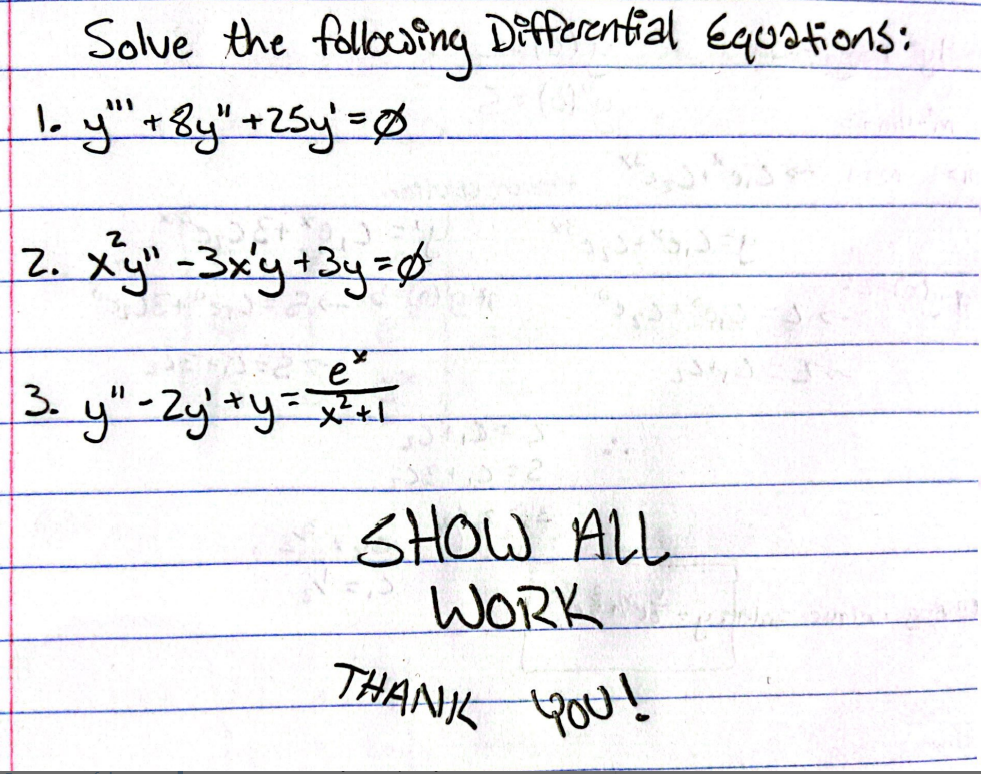 Solve the following Differential Equations:
1. y''' + 8y'' + 25y' = ∅
2. x²y'' - 3x'y + 3y = ∅
3. y'' - 2y' + y = eˣ / x² + 1
SHOW ALL
WORK
THANK YOU!